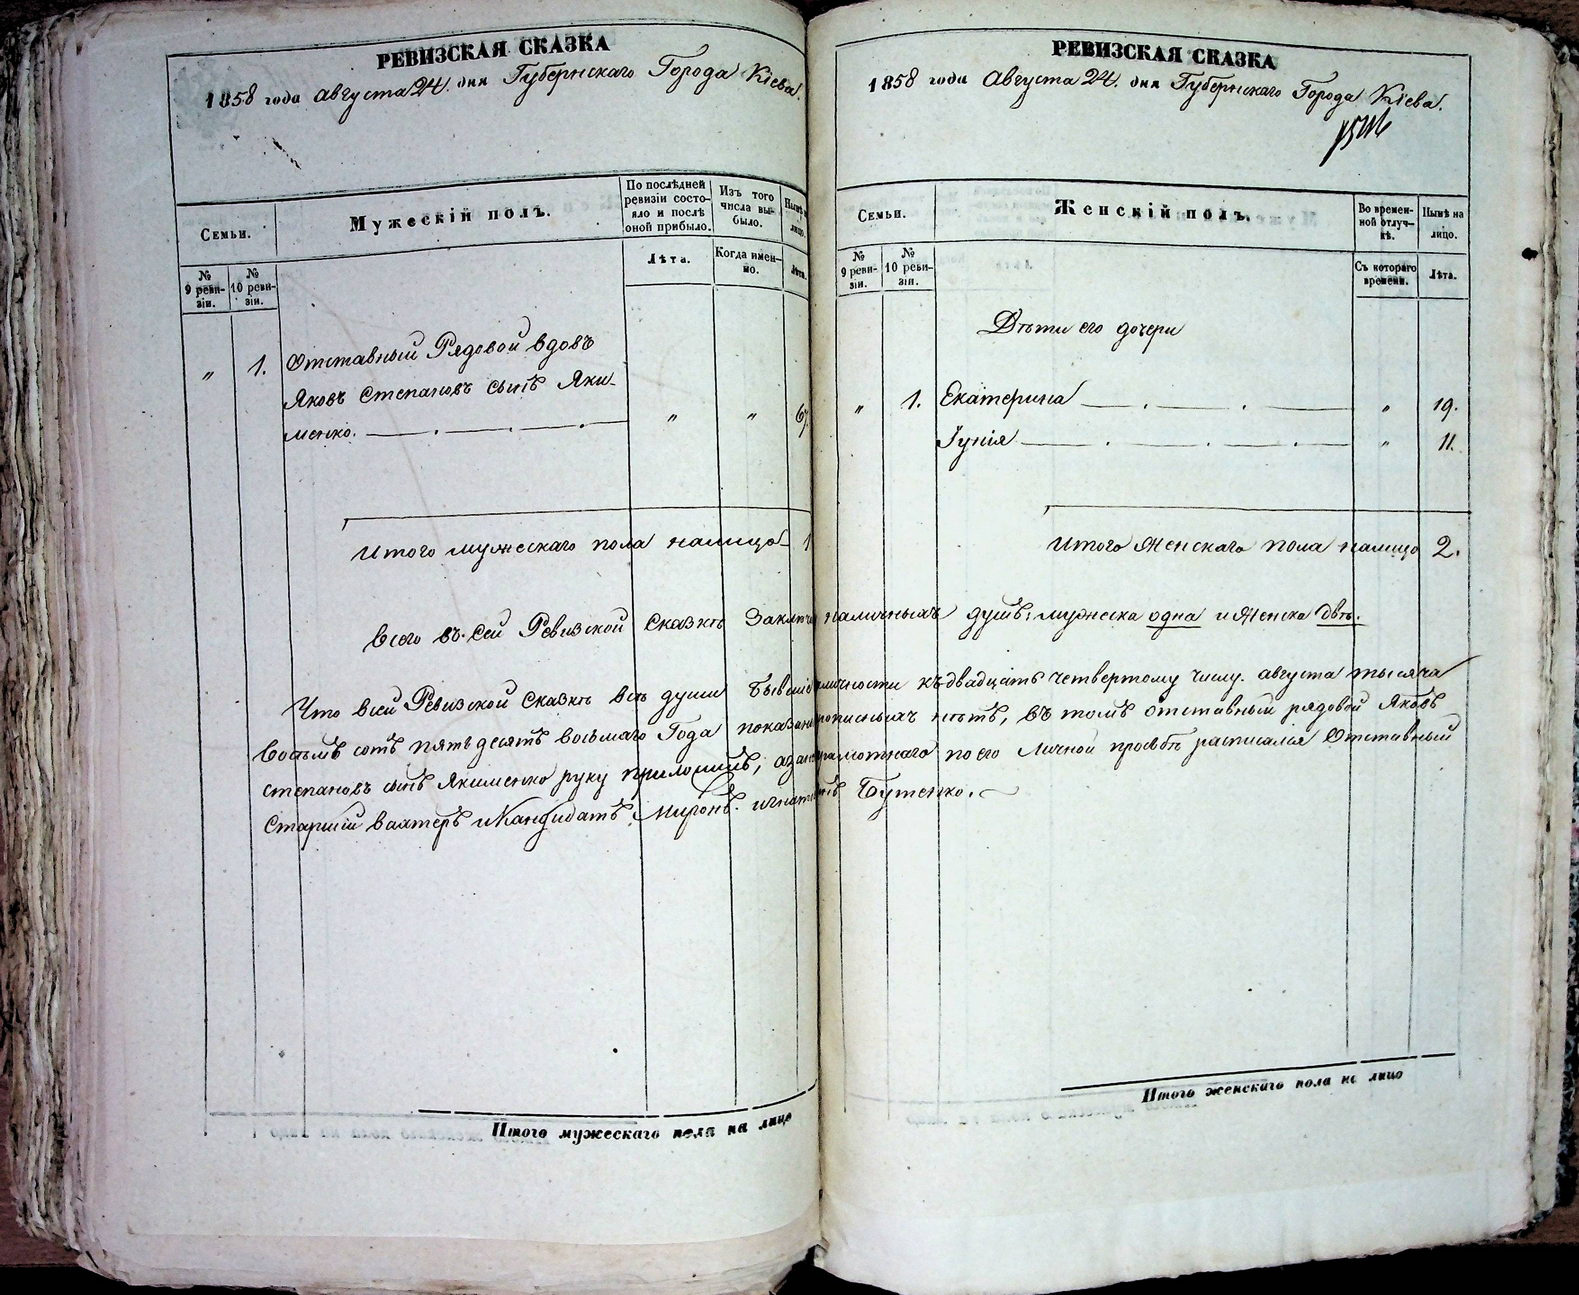 РЕВИЗСКАЯ СКАЗКА
1858 года Августа 24. дня Губернскаго Города Кіева.
Семьи.
Мужескій полъ.
По послѣдней ревизіи состо-
яло и послѣ оной прибыло.
Изъ того числа вы-
было.
Нынѣ на лицо.
№ 9 реви-
зіи.
№ 10 реви-
зіи.
Лѣта.
Когда имен-
но.
Лѣта.
" 1. Отставный Рядовой вдовъ
Яковъ Степановъ сынъ Яки-
менко. " " 67.
Итого мужескаго пола налицо 1
РЕВИЗСКАЯ СКАЗКА
1858 года Августа 24. дня Губернскаго Города Кіева.
Семьи.
Женскій полъ.
Во времен-
ной отлуч-
кѣ.
Нынѣ на лицо.
№ 9 реви-
зіи.
№ 10 реви-
зіи.
Съ котораго времени.
Лѣта.
Дѣти его дочери
" 1. Екатерина " 19.
Іунія " 11.
Итого Женскаго пола налицо 2.
Всего въ сей Ревизской Сказкѣ наличныхъ душъ: мужеска одна и Женска двѣ.
Что всей Ревизской Сказкѣ всѣ души къ двадцать четвертому числу. августа тысяча
восемъ сотъ пятьдесятъ восьмаго Года нѣтъ, въ томъ отставный рядовой Яковъ
Степановъ сынъ Якименко руку приложилъ, по его личной прозьбѣ расписался Отставный
Старшій вахтеръ и Кандидатъ, Миронъ. Бутенко.
Итого мужескаго пола на лицо
Итого женскаго пола на лицо